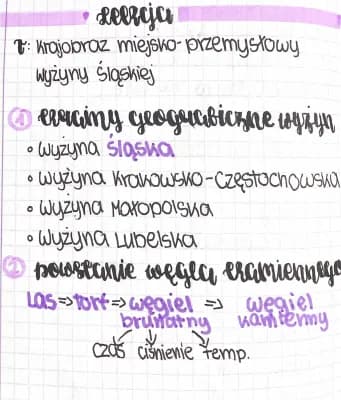 Lekcja
T: Krajobraz miejsko-przemysłowy
Wyżyny Śląskiej
1 Krainy geograficzne wyżyn
• Wyżyna Śląska
• Wyżyna Krakowsko-Częstochowska
• Wyżyna Małopolska
• Wyżyna Lubelska
2 Powstanie węgla kamiennego
Las => torf => węgiel => węgiel
brunatny kamienny
czas ciśnienie temp.